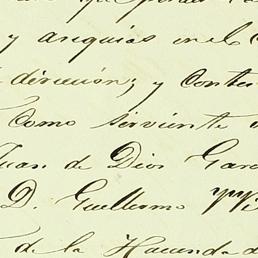 y anquias en el C
direccion; y Contes
Como sirviente
Juan de Dios Garc
D. Guillermo
de la Hacienda d